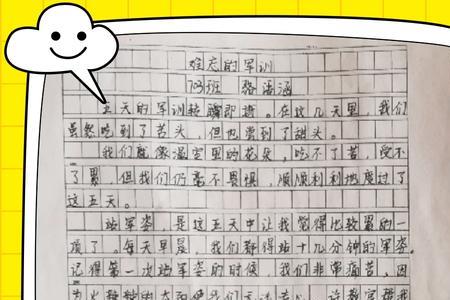 难忘的军训
703班 骆语涵
五天的军训转瞬即逝。在这几天里，我们
虽然吃到了苦头，但也尝到了甜头。
我们就像温室里的花朵，吃不了苦，受不
了累，但我们仍毫不畏惧，顺顺利利地度过了
这五天。
站军姿，是这五天中让我觉得比较累的一
项了。每天早晨，我们都得站十几分钟的军姿。
记得第一次站军姿的时候，我们非常痛苦，因
为火辣辣的太阳使我们